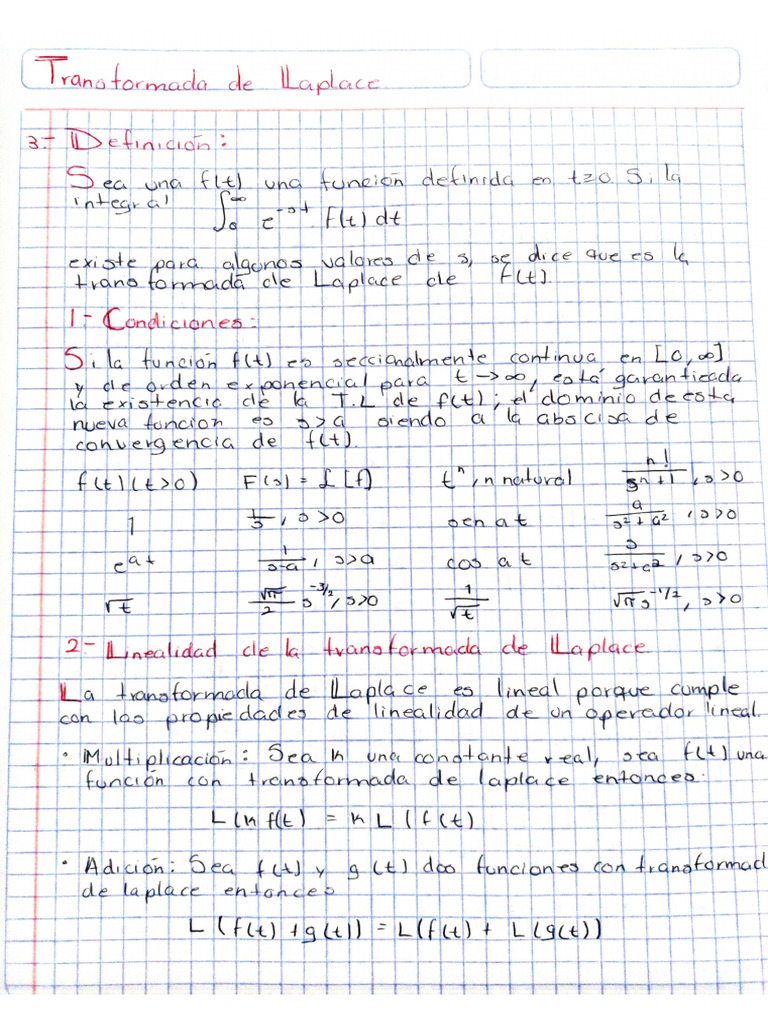 Transformada de Laplace
3.- Definición:
Sea una f(t) una función definida en t≥0. Si la
integral ∫₀^∞ e^{-st} f(t) dt
existe para algunos valores de s, se dice que es la
transformada de Laplace de f(t).
1- Condiciones:
Si la función f(t) es seccionalmente continua en [0,∞]
y de orden exponencial para t→∞, está garantizada
la existencia de la T.L de f(t); el dominio de esta
nueva función es s>a siendo a la abscisa de
convergencia de f(t).
f(t)(t>0) F(s) = £[f] tⁿ, n natural n!/sⁿ⁺¹, s>0
1 1/s, s>0 sen at a/(s²+a²), s>0
e^{at} 1/(s-a), s>a cos at s/(s²+a²), s>0
√t √π/2 s^{-3/2}, s>0 1/√t √π s^{-1/2}, s>0
2- Linealidad de la transformada de Laplace
La transformada de Laplace es lineal porque cumple
con las propiedades de linealidad de un operador lineal.
• Multiplicación: Sea k una constante real, sea f(t) una
función con transformada de laplace entonces:
L(k f(t) = k L(f(t)
• Adición: Sea f(t) y g(t) dos funciones con transformad
de laplace entonces
L(f(t)+g(t)) = L(f(t) + L(g(t))